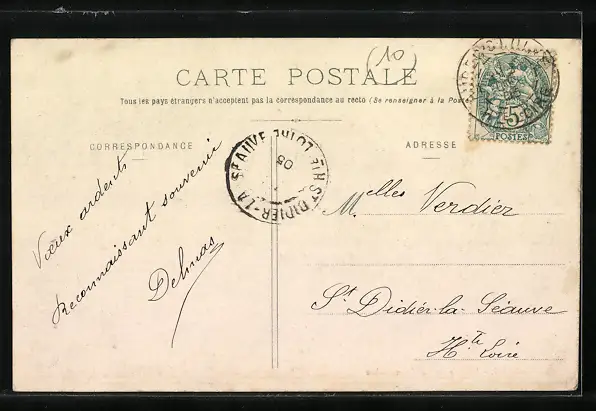 (10)
CARTE POSTALE
Tous les pays étrangers n'acceptent pas la correspondance au recto (Se renseigner à la Poste
CORRESPONDANCE
ADRESSE
5
POSTES
ST DIDIER-LA SÉAUVE
HTE LOIRE
05
Vœux ardents
Reconnaissant souvenir
Delmas
Melles Verdier
St Didier-la-Séauve
Hte Loire